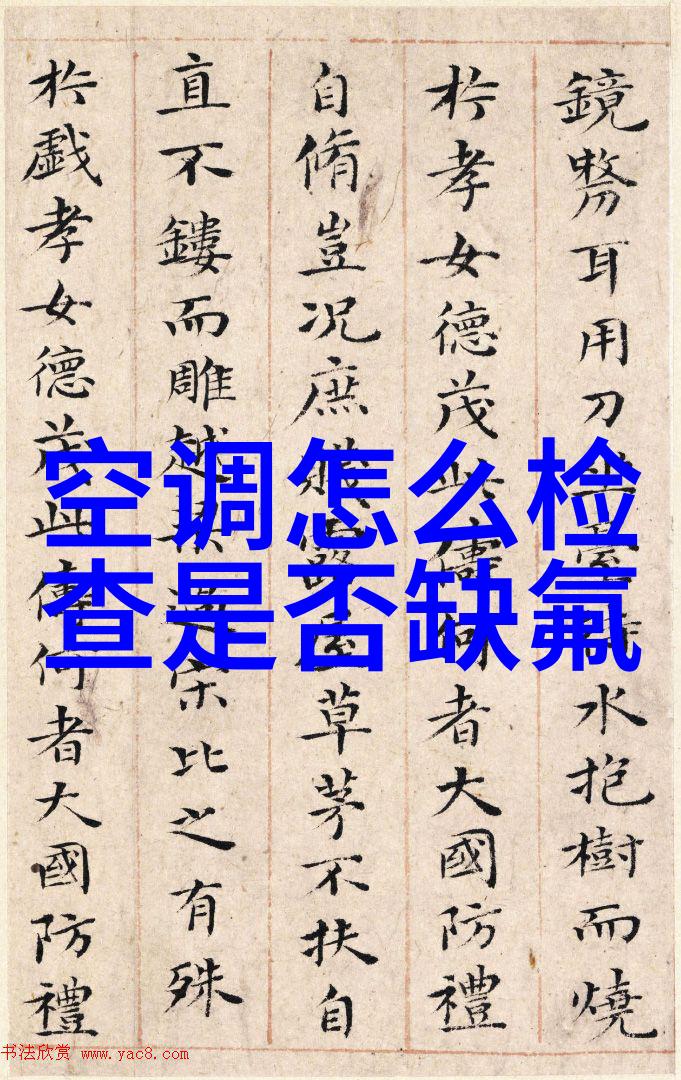 鏡剺耳用刀
水抱樹而燒
於孝女德茂此儔何者大國防禮
自脩豈况庶賤露屋草茅不扶自
直不鏤而雕越梁過宋比之有殊
於戲孝女德茂此儔何者大國防禮
空调怎么检
查是否缺氟
书法欣赏 www.yac8.com